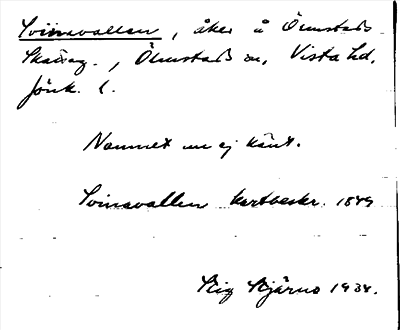 Svinavallen, åker å Ölmstads
Skattag., Ölmstads sn, Vista hd,
Jönk. l.
Namnet nu ej känt.
Svinavallen kartbeskr. 1849
Stig Stjärne 1934.